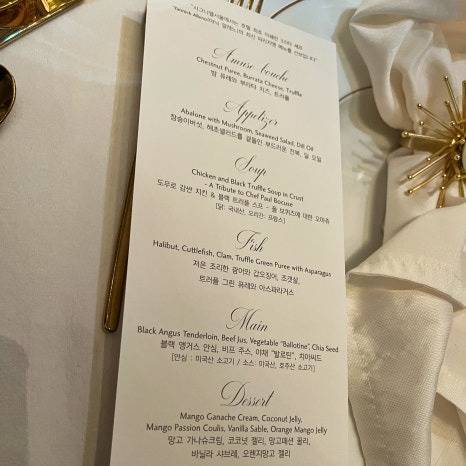 Amuse bouche
Chestnut Puree, Burrata Cheese, Truffle
밤 퓨레와 부라타 치즈, 트러플
Appetizer
Abalone with Mushroom, Seaweed Salad, Dill Oil
참송이버섯, 해초샐러드를 곁들인 부드러운 전복, 딜 오일
Soup
Chicken and Black Truffle Soup in Crust
- A Tribute to Chef Paul Bocuse
도우로 감싼 치킨 & 블랙 트러플 스프 - 폴 보퀴즈에 대한 오마쥬
[닭: 국내산, 오리간: 프랑스]
Fish
Halibut, Cuttlefish, Clam, Truffle Green Puree with Asparagus
저온 조리한 광어와 갑오징어, 조갯살,
트러플 그린 퓨레와 아스파라거스
Main
Black Angus Tenderloin, Beef Jus, Vegetable "Ballotine", Chia Seed
블랙 앵거스 안심, 비프 주스, 야채 "발로틴", 치아씨드
[안심 : 미국산 소고기 / 소스: 미국산, 호주산 소고기]
Dessert
Mango Ganache Cream, Coconut Jelly,
Mango Passion Coulis, Vanilla Sable, Orange Mango Jelly
망고 가나슈크림, 코코넛 젤리, 망고패션 꿀리,
바닐라 샤브레, 오렌지망고 젤리